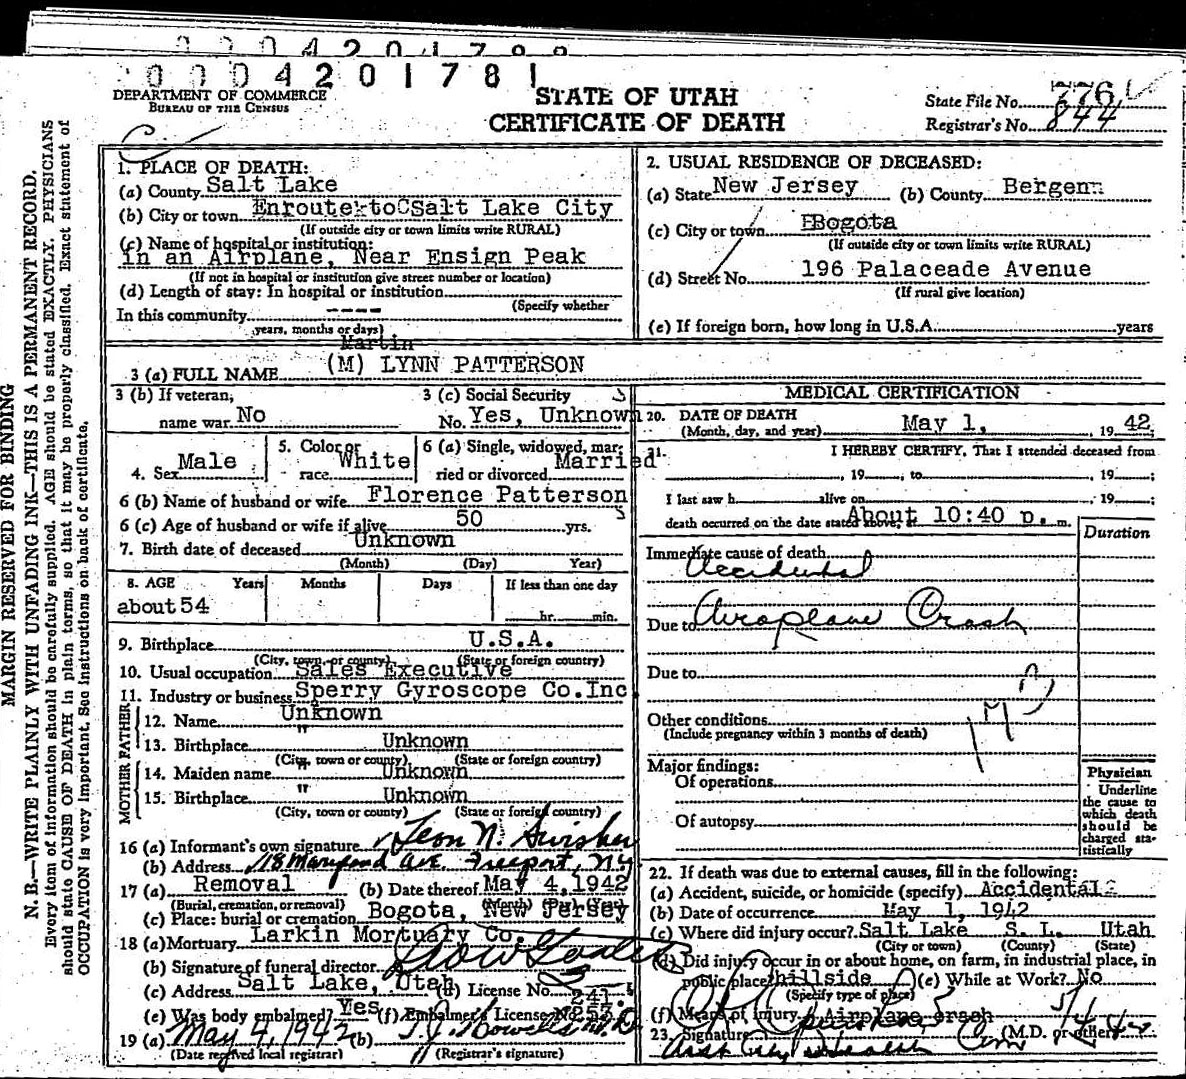 0004201781
DEPARTMENT OF COMMERCE
BUREAU OF THE CENSUS
STATE OF UTAH
CERTIFICATE OF DEATH
State File No. 776
Registrar's No. 844
MARGIN RESERVED FOR BINDING
N. B.—WRITE PLAINLY WITH UNFADING INK—THIS IS A PERMANENT RECORD.
Every item of information should be carefully supplied. AGE should be stated EXACTLY. PHYSICIANS
should state CAUSE OF DEATH in plain terms, so that it may be properly classified. Exact statement of
OCCUPATION is very important. See instructions on back of certificate.
1. PLACE OF DEATH:
(a) County Salt Lake
(b) City or town Enroute to Salt Lake City
(If outside city or town limits write RURAL)
(c) Name of hospital or institution:
in an Airplane, Near Ensign Peak
(If not in hospital or institution give street number or location)
(d) Length of stay: In hospital or institution
(Specify whether
In this community ----
years, months or days)
2. USUAL RESIDENCE OF DECEASED:
(a) State New Jersey (b) County Bergen
(c) City or town Bogota
(If outside city or town limits write RURAL)
(d) Street No. 196 Palaceade Avenue
(If rural give location)
(e) If foreign born, how long in U.S.A. years
Martin
3 (a) FULL NAME (M) LYNN PATTERSON
3 (b) If veteran, name war No
3 (c) Social Security No. Yes, Unknown
4. Sex Male
5. Color or race White
6 (a) Single, widowed, married or divorced Married
6 (b) Name of husband or wife Florence Patterson
6 (c) Age of husband or wife if alive 50 yrs.
7. Birth date of deceased Unknown
(Month) (Day) Year)
8. AGE Years Months Days If less than one day
about 54 hr. min.
9. Birthplace U.S.A.
(City, town, or county) (State or foreign country)
10. Usual occupation Sales Executive
11. Industry or business Sperry Gyroscope Co.Inc
FATHER
12. Name Unknown
13. Birthplace " Unknown
(City, town or county) (State or foreign country)
MOTHER
14. Maiden name Unknown
15. Birthplace " Unknown
(City, town or county) (State or foreign country)
16 (a) Informant's own signature Leon N. Swisher
(b) Address 118 Maryland Ave. Freeport, N.Y.
17 (a) Removal (b) Date thereof May 4, 1942
(Burial, cremation, or removal) (Month) (Day) (Year)
(c) Place: burial or cremation Bogota, New Jersey
18 (a) Mortuary Larkin Mortuary Co.
(b) Signature of funeral director
(c) Address Salt Lake, Utah (d) License No. 241
(e) Was body embalmed? Yes (f) Embalmer's License No. 253
19 (a) May 4, 1942 (b) T. J. Howells M.D.
(Date received local registrar) (Registrar's signature)
MEDICAL CERTIFICATION
20. DATE OF DEATH
(Month, day, and year) May 1, , 19 42;
21. I HEREBY CERTIFY, That I attended deceased from
, 19 ; to , 19 ;
I last saw h alive on , 19 ;
death occurred on the date stated above, at About 10:40 p. m.
Duration
Immediate cause of death
Accidental
Due to Airoplane Crash
Due to
Other conditions
(Include pregnancy within 3 months of death)
Major findings:
Of operations
Of autopsy
Physician
Underline
the cause to
which death
should be
charged sta-
tistically
22. If death was due to external causes, fill in the following:
(a) Accident, suicide, or homicide (specify) Accidental
(b) Date of occurrence May 1, 1942
(c) Where did injury occur? Salt Lake S. L. Utah
(City or town) (County) (State)
(d) Did injury occur in or about home, on farm, in industrial place, in
public place? hillside (e) While at Work? No
(Specify type of place)
(f) Means of injury Airplane crash
23. Signature (M.D. or other)